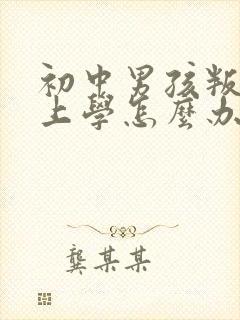 初中男孩叛
上學怎麼办
龔某某